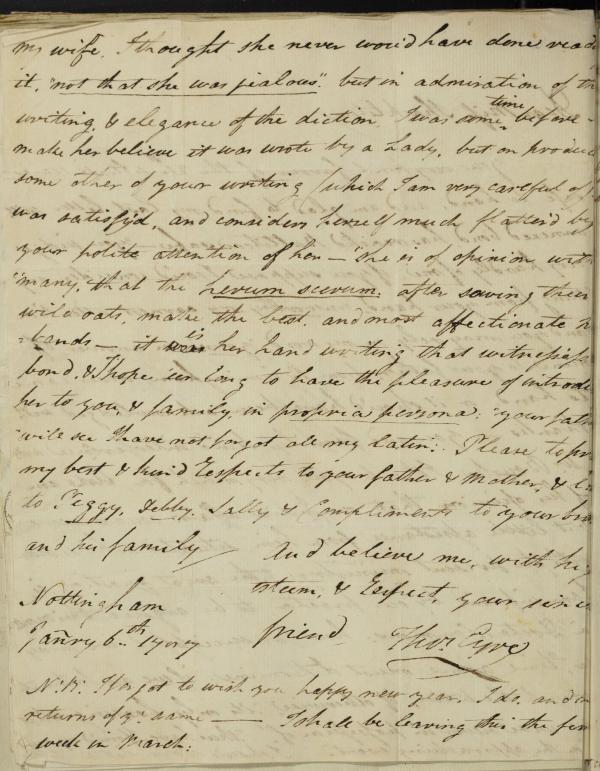 my wife. I thought she never would have done read
it, "not that she was jealous". but in admiration of th
writing, & elegance of the diction. I was some time before
make her believe it was wrote by a Lady, but on produc
some other of your writing (which I am very careful of
was satisfyd, and considers herself much flatter'd by
your polite attention of her — "she is of opinion with
"many, that the herum scerum, after sowing their
wild oats, make the best, and most affectionate h
=bands — it is her hand writing that witnesses
bond, & I hope 'ere long to have the pleasure of introdu
her to you, & family, in propria persona: "your fath
"will see I have not forgot all my latin:. Please to pr
my best & kind Respects to your father & Mother, &
to Peggy, Debby, Sally & Compliments to your bro
and his family
And believe me, with hig
esteem, & Respect, your since
friend Thos. Eyre
Nottingham
Janry 6th
N:B: I forgot to wish you happy new year, I do, and m
returns of ye. same — I shall be leaving this the fir
week in March: